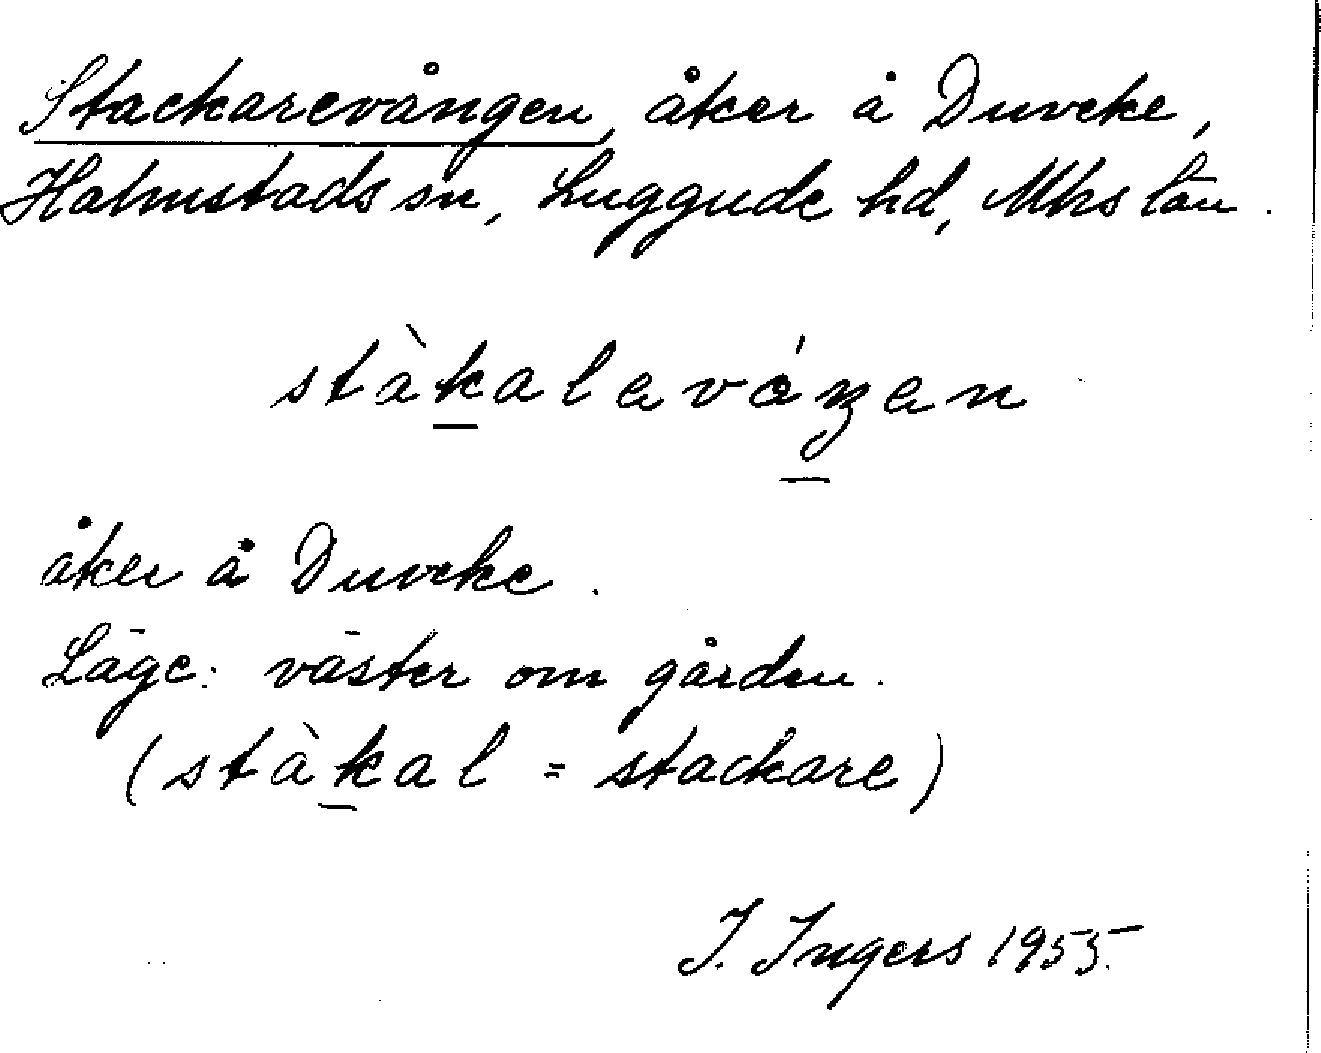 Stackarevången, åker å Duveke,
Halmstads sn, Luggude hd, Mhs län.
stàkalaváŋan
åker å Duveke.
Läge: väster om gården.
(stàkal = stackare)
I. Ingers 1955.